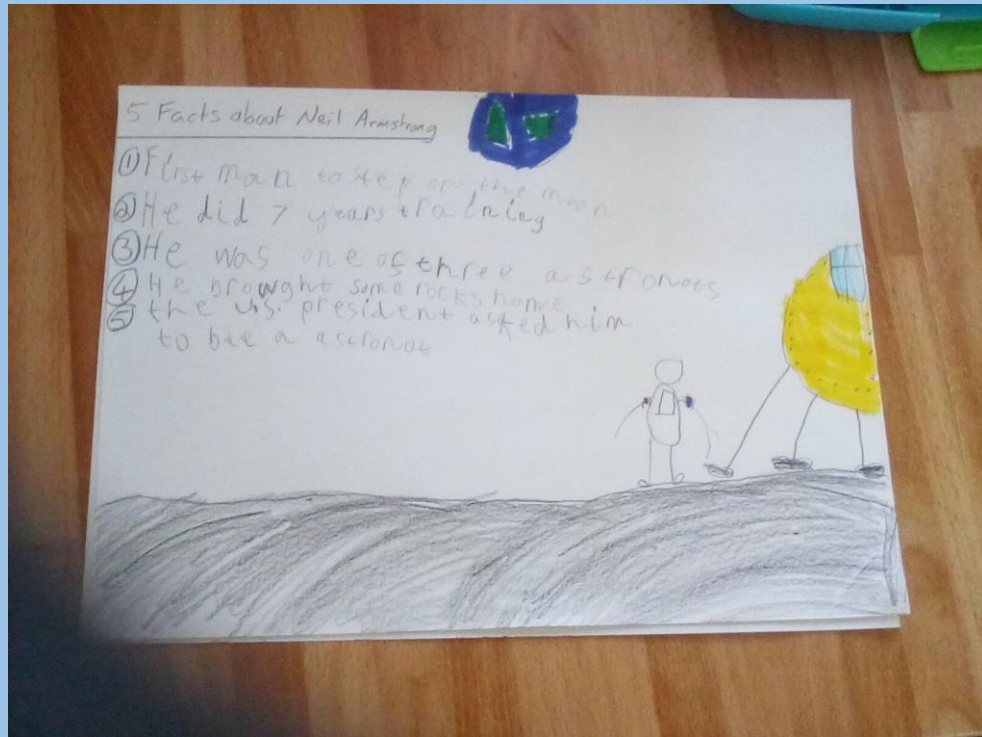 5 Facts about Neil Armstrong
① First man to step on the moon
② He did 7 years training
③ He was one of three astronots
④ He brought some rocks home
⑤ the U.S. president asked him
to bee a astronot